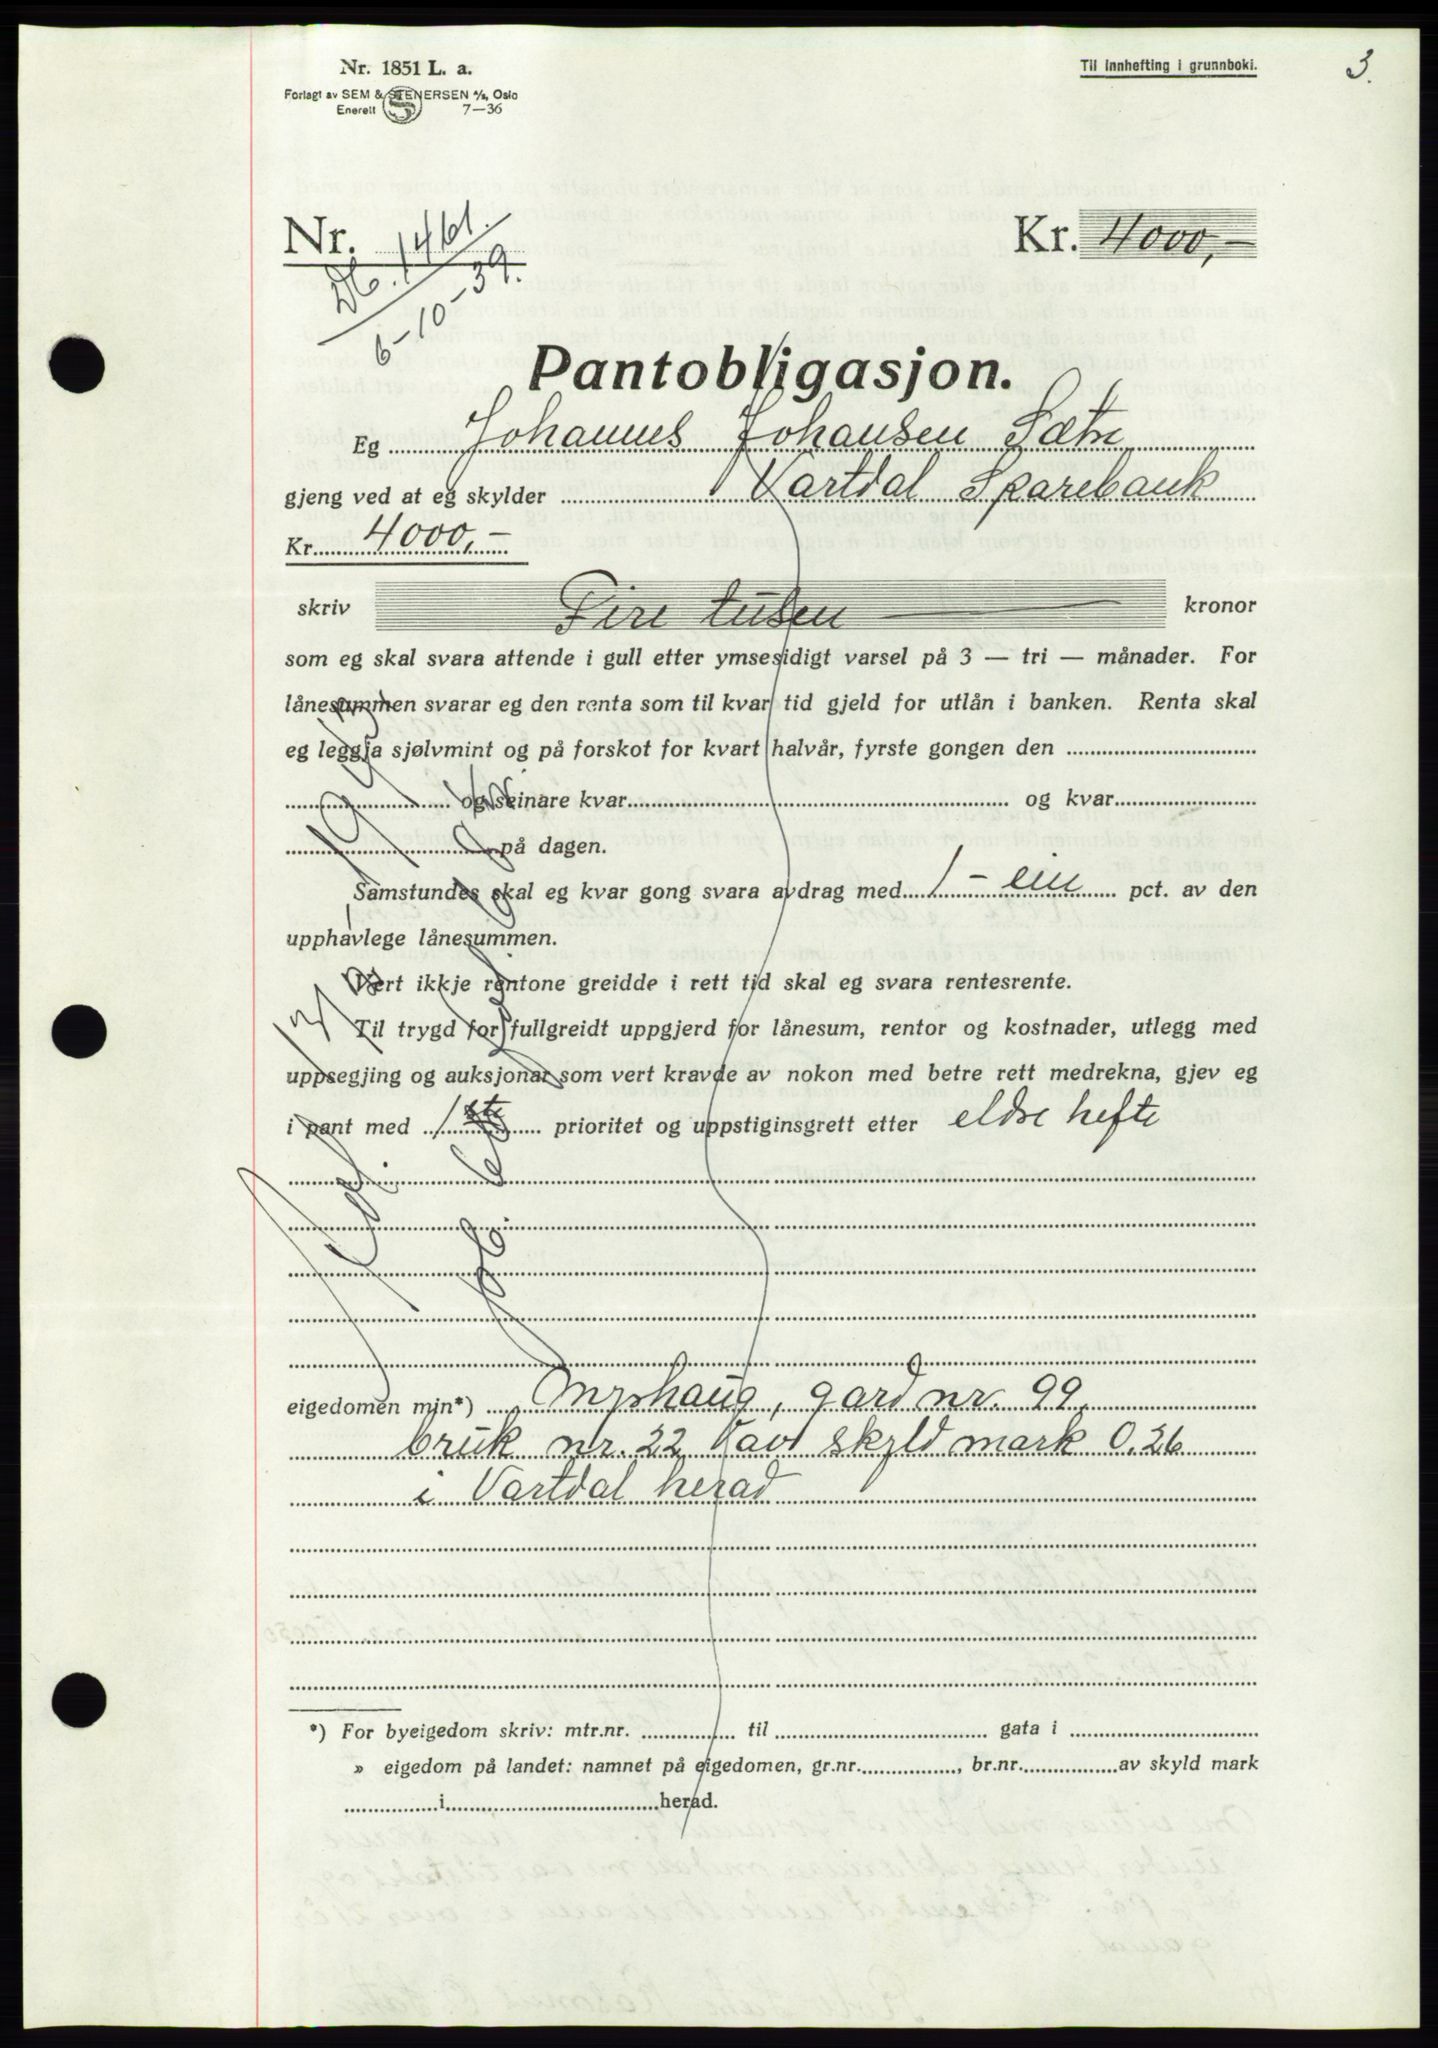 3.
Nr. 1851 L. a.
Forlagt av SEM & STENERSEN A/S, Oslo
Enerett 7—36
Til innhefting i grunnboki.
Nr. Db. 1461.
6-10-39.
Kr. 4000,-
Pantobligasjon.
Eg Johannes Johansen Sætre
gjeng ved at eg skylder Vartdal Sparebank
Kr. 4000,-
skriv Fire tusen kronor
som eg skal svara attende i gull etter ymsesidigt varsel på 3 — tri — månader. For
lånesummen svarar eg den renta som til kvar tid gjeld for utlån i banken. Renta skal
eg leggja sjølvmint og på forskot for kvart halvår, fyrste gongen den
og seinare kvar og kvar
på dagen.
Samstundes skal eg kvar gong svara avdrag med 1 - ein pct. av den
upphavlege lånesummen.
Vert ikkje rentone greidde i rett tid skal eg svara rentesrente.
Til trygd for fullgreidt uppgjerd for lånesum, rentor og kostnader, utlegg med
uppsegjing og auksjonar som vert kravde av nokon med betre rett medrekna, gjev eg
i pant med 1ste prioritet og uppstiginsgrett etter eldre hefte
eigedomen min*) Myrhaug, gard nr. 99,
bruk nr. 22 av skyld mark 0.26
i Vartdal herad
*) For byeigedom skriv: mtr.nr. til gata i
» eigedom på landet: namnet på eigedomen, gr.nr. , br.nr. av skyld mark
i herad.